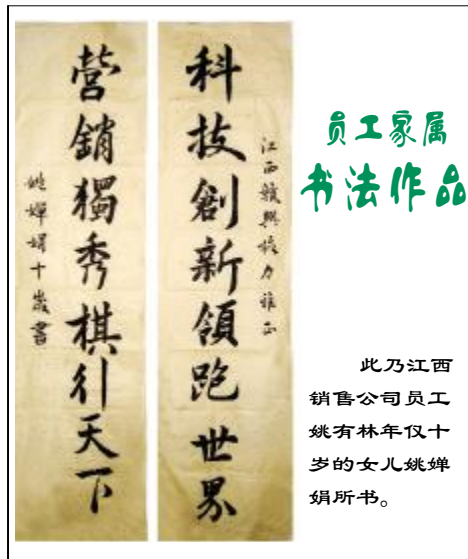 科技創新領跑世界
江西贛興 力雅正
營銷獨秀棋行天下
姚嬋娟十歲書
员工家属
书法作品
此乃江西
销售公司员工
姚有林年仅十
岁的女儿姚婵
娟所书。